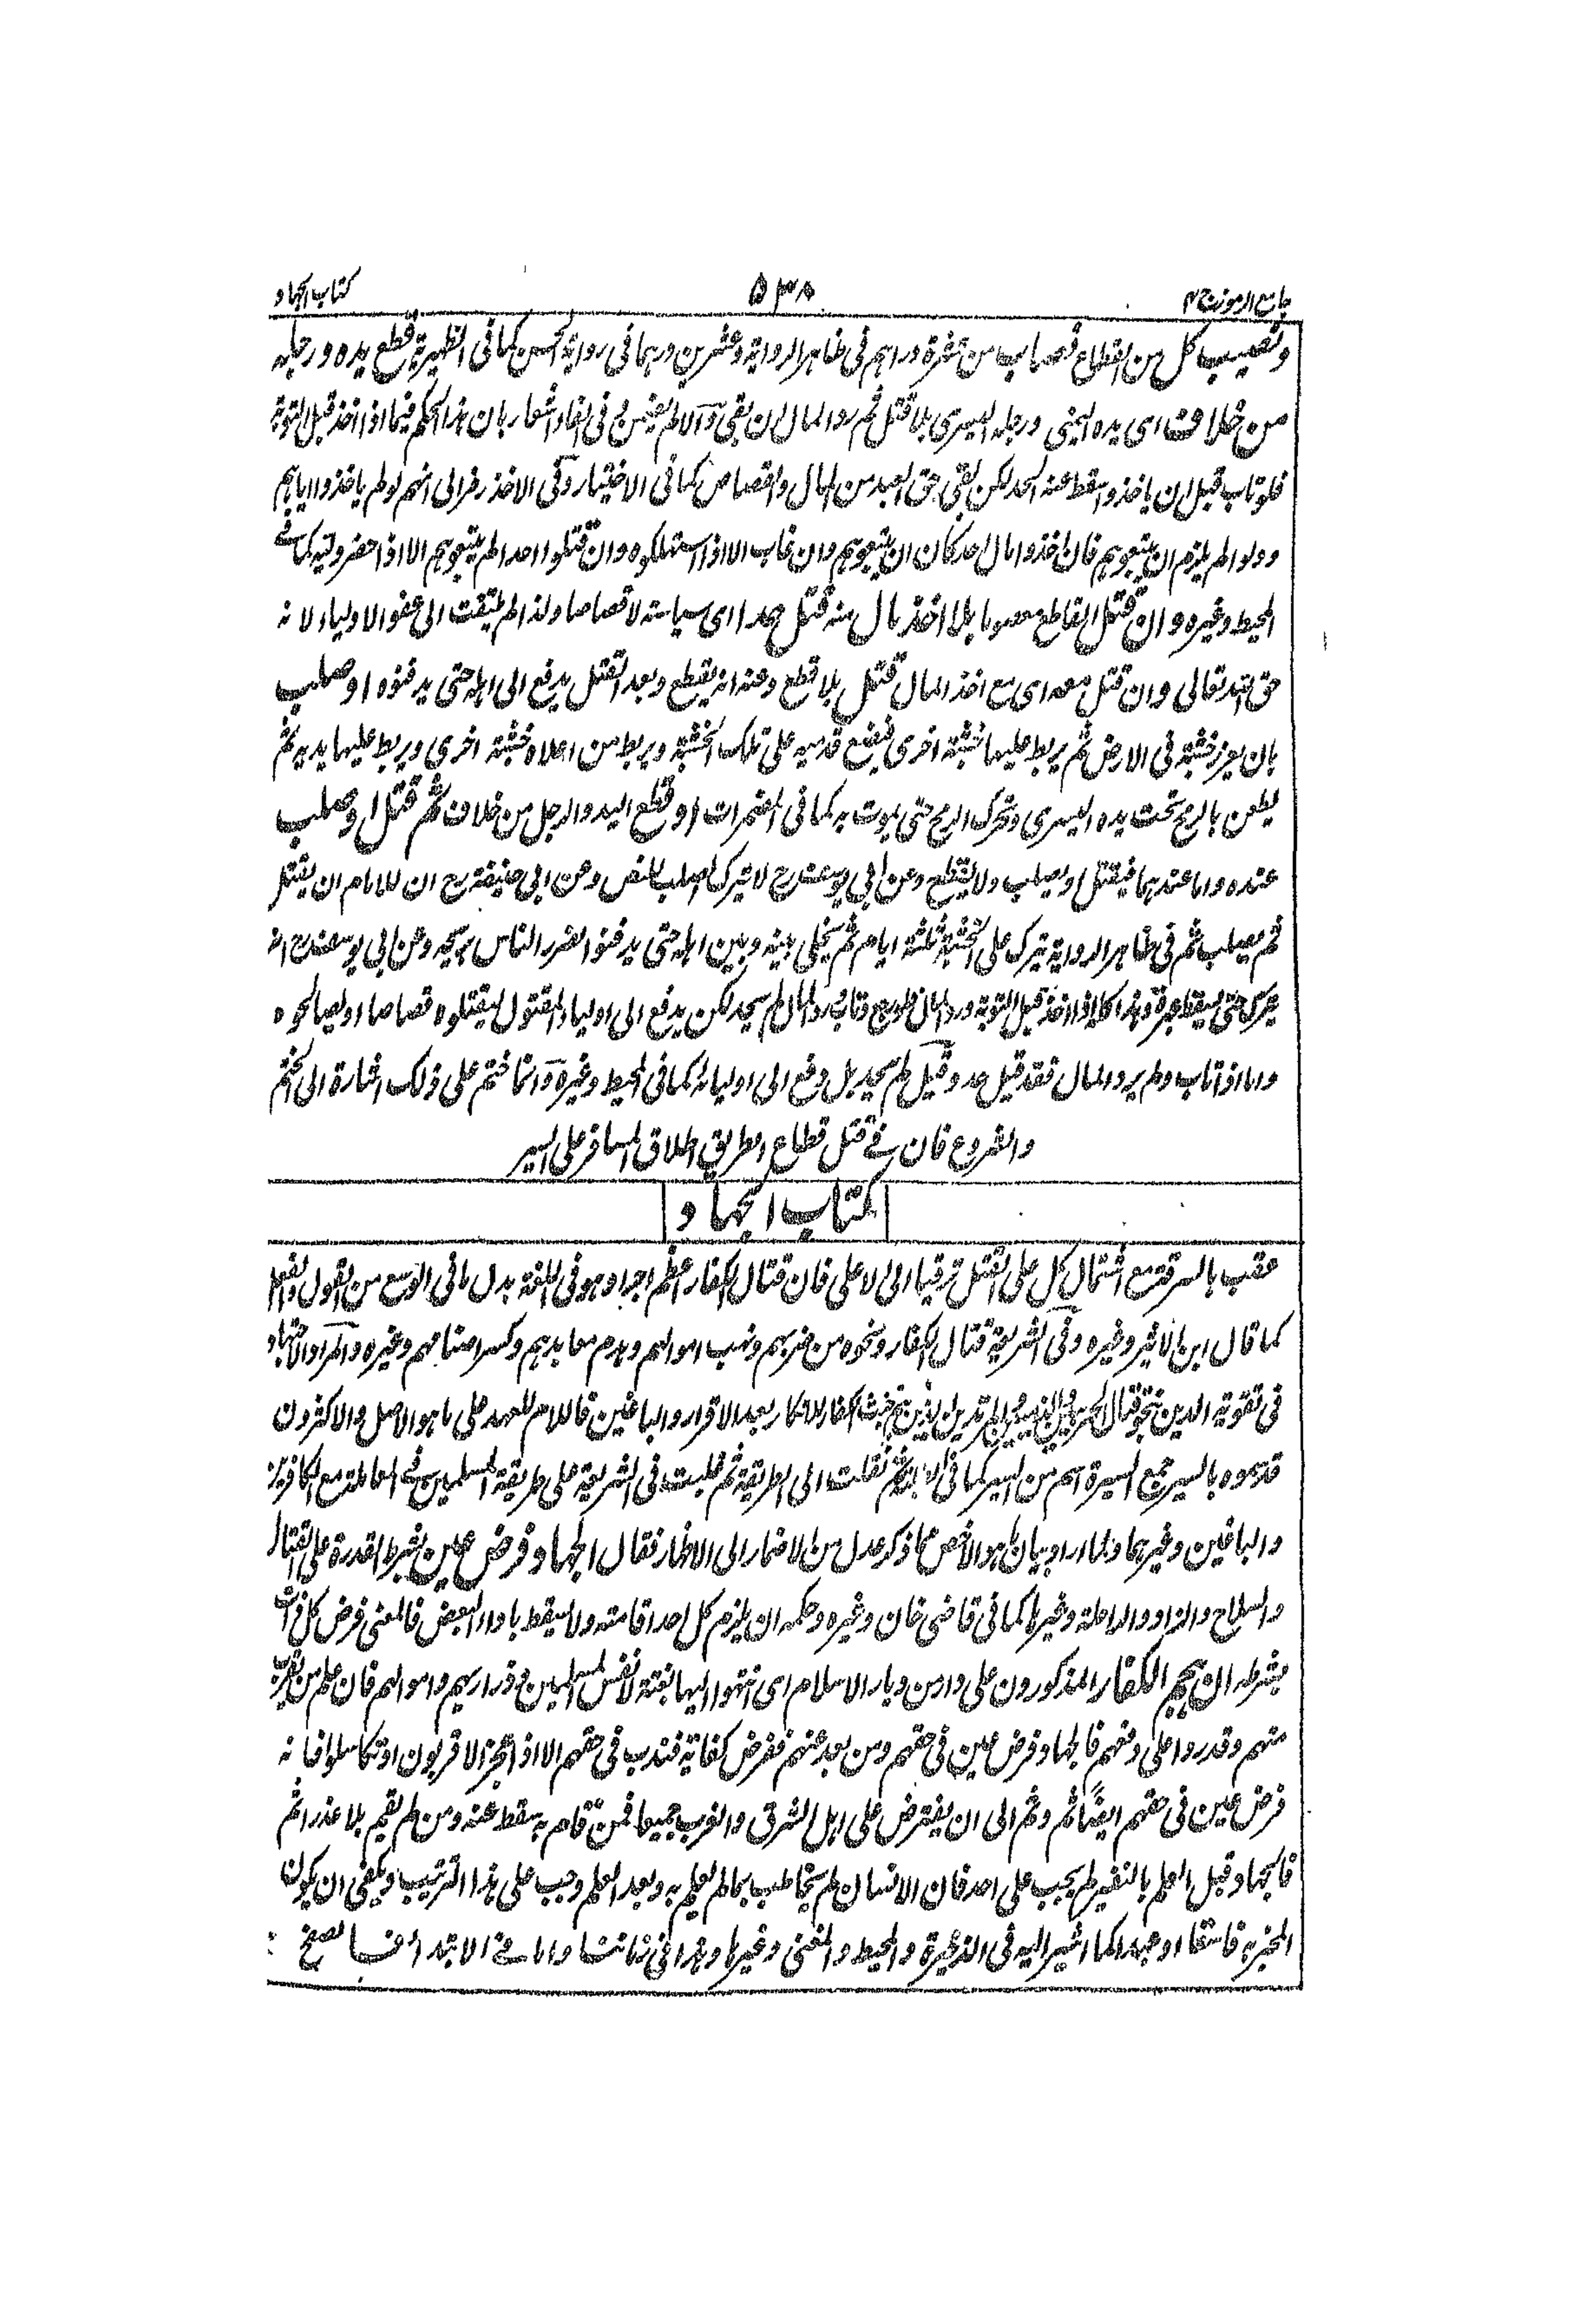 جامع الرموز ج ٢ ٥٣٨ كتاب الجهاد
ونصيب كل من القطاع نصاب من عشرة دراهم في ظاهر الرواية وعشرين درهما في رواية الحسن كما في الظهيرية قطع يده ورجله
من خلاف اى يده اليمنى ورجله اليسرى بلا قتل ثم رد المال ان بقى والا لم يضمن وفى الفاء اشعار بان هذا الحكم فيما اذا اخذ قبل التوبة
فلو تاب قبل ان ياخذوا سقط عنه الحد لكن بقى حق العبد من المال والقصاص كما في الاختيار وفى الاخذ رمز الى انهم لو لم ياخذوا اياهم
وولوا لم يلزم ان يتبعوهم فان اخذوا مال احد كان ان يتبعوهم وان غاب الا اذا استهلكوه وان قتلوا احدا لم يتبعوهم الا اذا حضر وليه كما في
المحيط وغيره وان قتل القاطع معصوما بلا اخذ مال منه قتل حدا اى سياسة لا قصاصا ولذا لم يلتفت الى عفو الاولياء لانه
حق الله تعالى وان قتل معه اى مع اخذ المال قتل بلا قطع وعنه انه يقطع وبعد القتل يدفع الى اهله حتى يدفنوه او صلب
بان يغرز خشبة في الارض ثم يربط عليها خشبة اخرى فيضع قدميه على تلك الخشبة ويربط من اعلاه خشبة اخرى ويربط عليها يديه ثم
يطعن بالرمح تحت يده اليسرى ويحرك الرمح حتى يموت به كما في المضمرات او قطع اليد والرجل من خلاف ثم قتل او صلب
عنده واما عندهما فيقتل او يصلب ولا يقطع وعن ابي يوسف رح لا يترك الصلب للنص وعن ابي حنيفة رح ان للامام ان يقتل
ثم يصلب ثم في ظاهر الرواية يترك على الخشبة ثلثة ايام ثم يخلى بينه وبين اهله حتى يدفنوا لضرر الناس بريحه وعن ابي يوسف رح انه
يترك حتى يسقط عبرة وهذا كله اذا اخذ قبل التوبة ورد المال فلو رجع وتاب ورد المال لم يحد لكن يدفع الى اولياء المقتول ليقتلوه قصاصا او يصالحوه
واما اذا تاب ولم يرد المال فقد قيل حد وقيل لم يحد بل دفع الى اوليائه كما في المحيط وغيره وانما ختم على ذلك اشارة الى الختم
والشروع فان في قتل قطاع الطريق اطلاق المسافر على السير
كتاب الجهاد
عقب بالسرقة مع اشتمال كل على القتل ترقيا الى الاعلى فان قتال الكفار اعظم اجرا وهو في اللغة بذل ما في الوسع من القول والفعل
كما قال ابن الاثير وغيره وفى الشريعة قتال الكفار ونحوه من ضربهم ونهب اموالهم وهدم معابدهم وكسر اصنامهم وغيره والمراد الاجتهاد
في تقوية الدين بنحو قتال الحربيين والذميين والمرتدين الذين هم اخبث الكفار للانكار بعد الاقرار والباغين فاللام للعهد على ما هو الاصل والاكثرون
قد سموه بالسير جمع السيرة اسم من السير كما في ثم نقلت الى الطريقة ثم غلبت في الشريعة على طريقة المسلمين في المعاملة مع الكافرين
والباغين وغيرهما ولما اراد بيان ما هو الاخص مما ذكر عدل من الاضمار الى الاظهار فقال الجهاد فرض عين بشرط القدرة على القتال
والسلاح والزاد والراحلة وغيرها كما في قاضى خان وغيره وحكمه ان يلزم كل احد اقامته ولا يسقط باداء البعض فالمعنى فرض كل فرد
بشرط ان هجم الكفار المذكورون على دار من ديار الاسلام اى انتهوا اليها بغتة لانفس المسلمين وذراريهم واموالهم فان علم من يقرب
منهم وقدروا على دفعهم فالجهاد فرض عين في حقهم ومن بعد عنهم ففرض كفاية فندب في حقهم الا اذا عجز الاقربون او تكاسلوا فانه
فرض عين في حقهم ايضًا ثم وثم الى ان يفترض على اهل الشرق والغرب جميعا فمن قام به سقط عنه ومن لم يقم بلا عذر اثم
فالجهاد قبل العلم بالنفير لم يجب على احد فان الانسان لم يخاطب بما لم يعلم به وبعد العلم وجب على هذا الترتيب ويكفى ان يكون
المخبر به فاسقا او عبدا كما اشير اليه في الذخيرة والمحيط والمغنى وغيرها وهذا في زماننا واما في الابتداء فالصفح